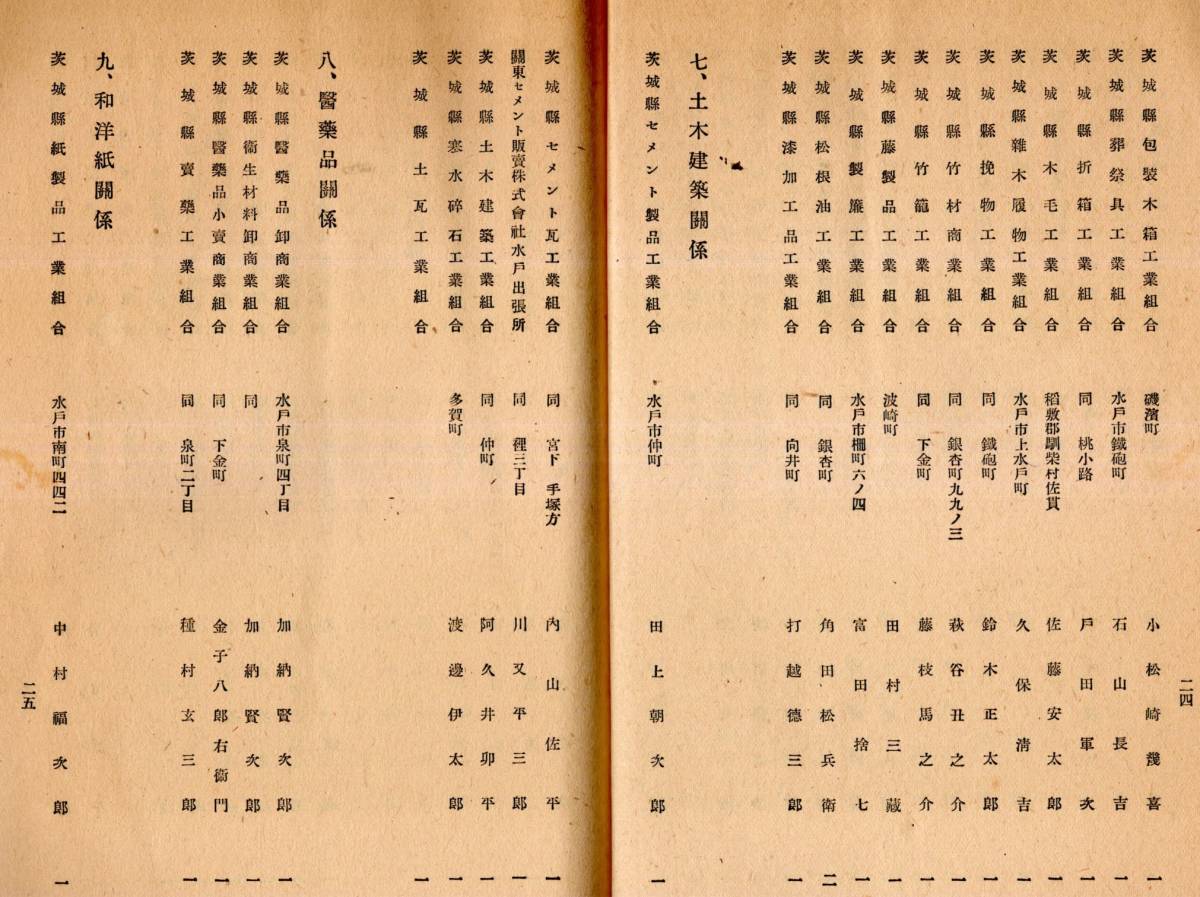 茨城縣包裝木箱工業組合 磯濱町 小松崎幾喜 一
茨城縣葬祭具工業組合 水戶市鐵砲町 石山長吉 一
茨城縣折箱工業組合 同 桃小路 戶田軍次 一
茨城縣木毛工業組合 稻敷郡馴柴村佐貫 佐藤安太郎 一
茨城縣雜木履物工業組合 水戶市上水戶町 久保淸吉 一
茨城縣挽物工業組合 同 鐵砲町 鈴木正太郎 一
茨城縣竹材商業組合 同 銀杏町九九ノ三 萩谷丑之介 一
茨城縣竹籠工業組合 同 下金町 藤枝馬之介 一
茨城縣藤製品工業組合 波崎町 田村三藏 一
茨城縣製簾工業組合 水戶市柵町六ノ四 富田捨七 一
茨城縣松根油工業組合 同 銀杏町 角田松兵衞 二
茨城縣漆加工品工業組合 同 向井町 打越德三郎 一
七、土木建築關係
茨城縣セメント製品工業組合 水戶市仲町 田上朝次郎 一
二四
茨城縣セメント瓦工業組合 同 宮下 手塚方 內山佐平 一
關東セメント販賣株式會社水戶出張所 同 裡三丁目 川又平三郎 一
茨城縣土木建築工業組合 同 仲町 阿久井卯平 一
茨城縣寒水碎石工業組合 多賀町 渡邊伊太郎 一
茨城縣土瓦工業組合 一
八、醫藥品關係
茨城縣醫藥品卸商業組合 水戶市泉町四丁目 加納賢次郎 一
茨城縣衞生材料卸商業組合 同 加納賢次郎 一
茨城縣醫藥品小賣商業組合 同 下金町 金子八郎右衞門 一
茨城縣賣藥工業組合 同 泉町二丁目 種村玄三郎 一
九、和洋紙關係
茨城縣紙製品工業組合 水戶市南町四四二 中村福次郎 一
二五